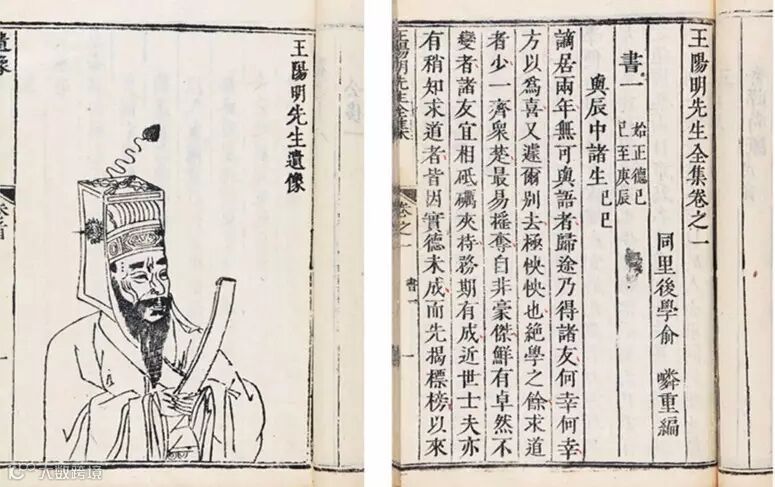 王陽明先生全集卷之一
同里後學俞 嶙重編
書一 始正德己
巳至庚辰
與辰中諸生 己巳
謫居兩年無可與語者歸途乃得諸友何幸何幸
方以爲喜又遽爾別去極怏怏也絶學之餘求道
者少一齊衆楚最易搖奪自非豪傑鮮有卓然不
變者諸友宜相砥礪夾持務期有成近世士夫亦
有稍知求道者皆因實德未成而先揭標榜以來
王陽明先生全集
卷之一
書一
一
王陽明先生遺像
遺像
卷首
一
大数跨境